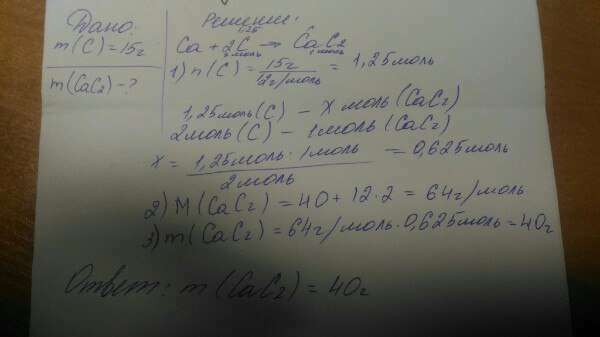 Дано:
m(C)=15г
m(CaC2)-?
Решение:
1,25
Ca + 2C → CaC2
2моль 1моль
1) n(C) = 15г / 12г/моль = 1,25моль
1,25моль(C) – X моль(CaC2)
2моль(C) – 1моль(CaC2)
X = 1,25моль · 1моль / 2моль = 0,625моль
2) M(CaC2) = 40 + 12·2 = 64г/моль
3) m(CaC2) = 64г/моль · 0,625моль = 40г
Ответ: m(CaC2) = 40г